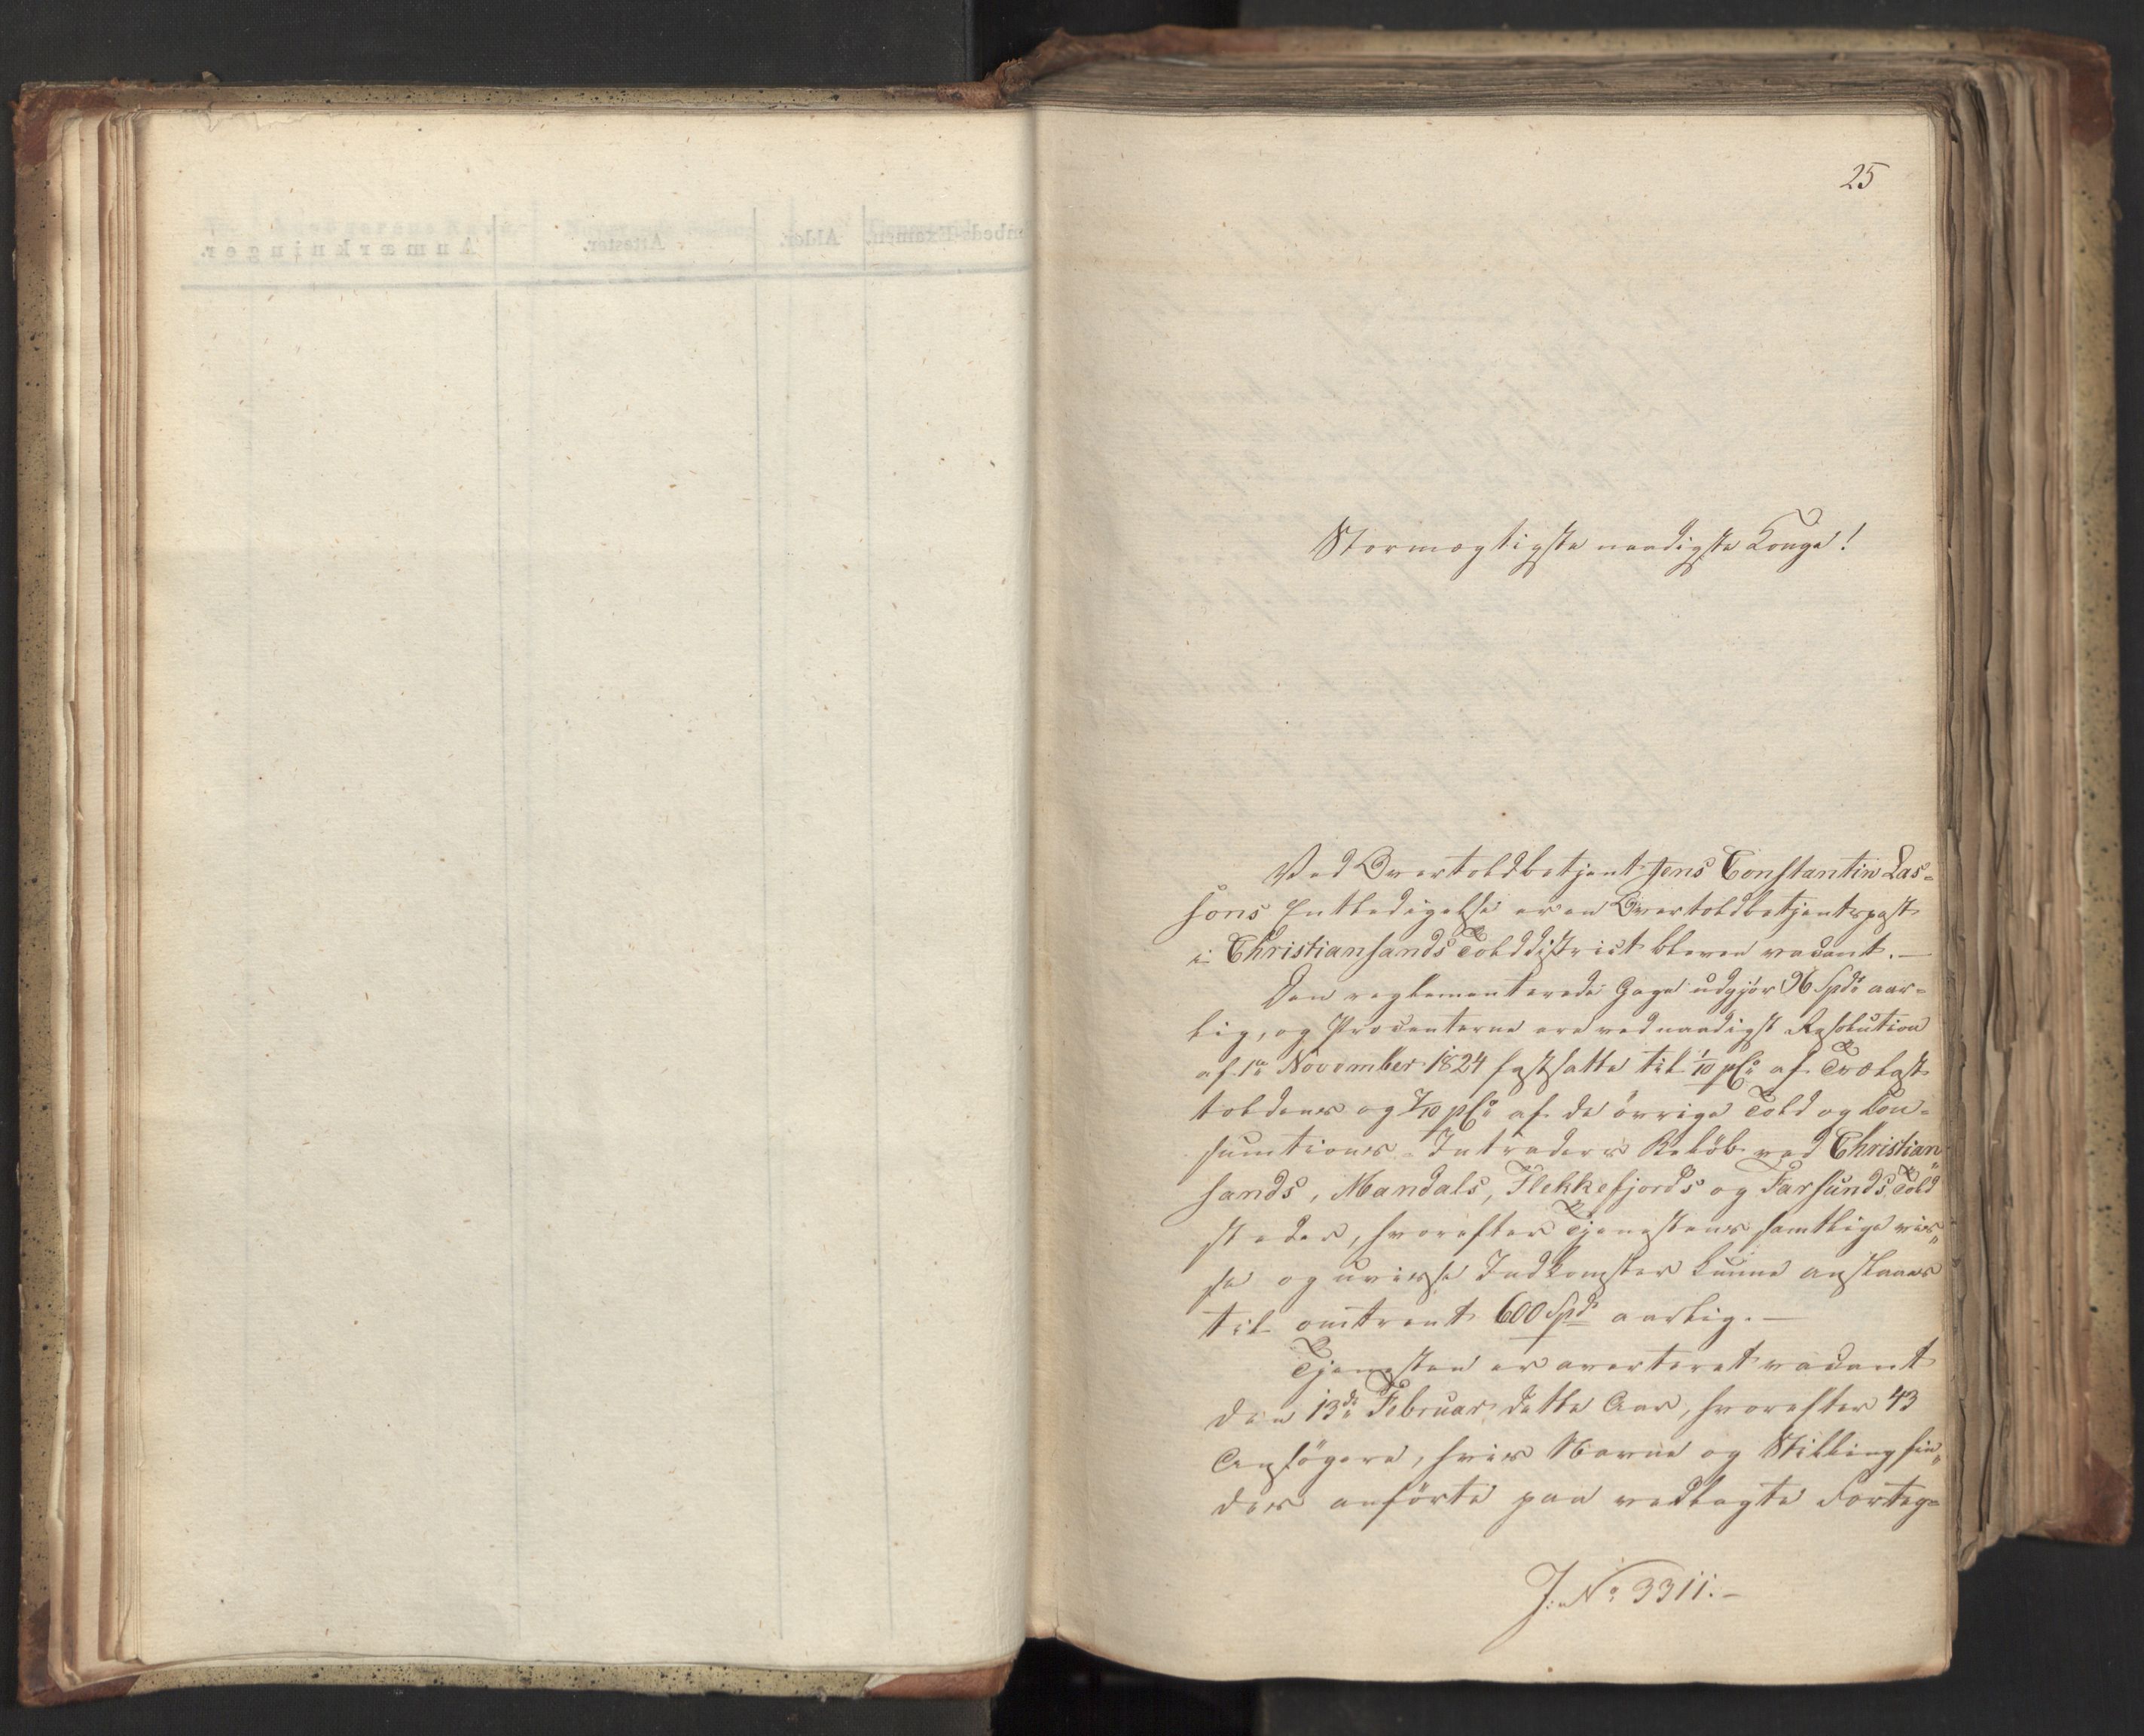 25
Stormægtigste naadigste Konge!
Ved Overtoldbetjent Jens Constantin Las-
sons Entledigelse er en Overtoldbetjentpost
i Christiansands Tolddistrict bleven vacant. —
Den reglementerede Gage udgjør 96 Spd. aar-
lig, og Procenterne ere ved naadigst Resolution
af 1ste November 1824 fastsatte til 1/10 pCt. af Trælast
toldens og 7/10 pCt. af de övrige Told og Con-
sumtions-Intraders Belöb ved Christian„
sands, Mandals, Flekkefjords og Farsunds Told
steder, hvorefter Tjenestens samtlige vis„
se og uvisse Indkomster kunne anslaaes
til omtrent 600 Spd. aarlig. —
Tjenesten er averteret vacant
den 13de Februar dette Aar, hvorefter 43
Ansögere, hvis Navne og Stilling fin„
des anförte paa vedlagte Forteg-
J. No 3311. —